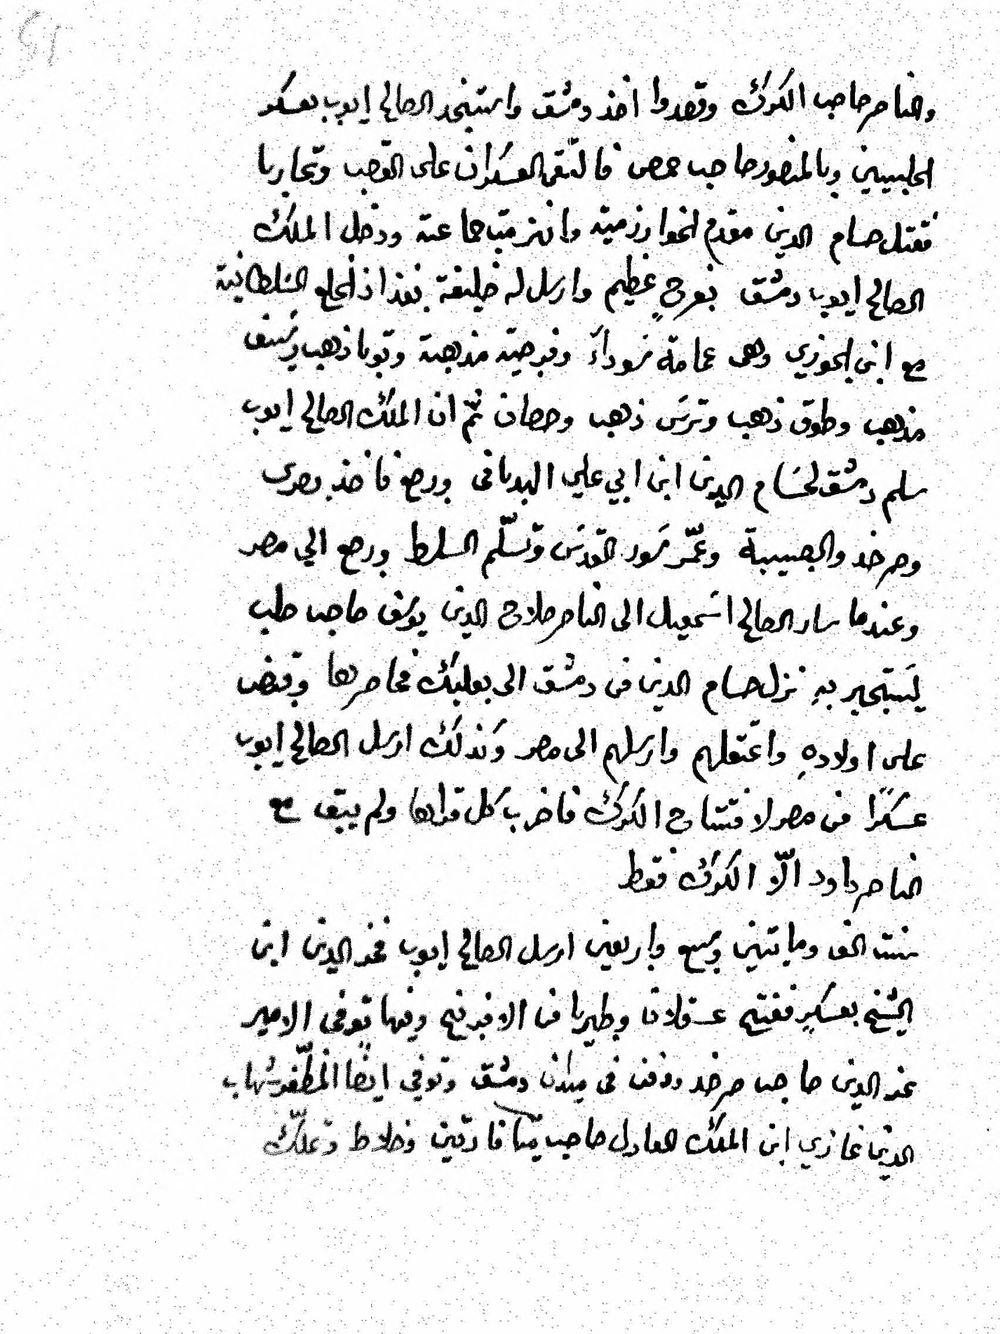 والناصر صاحب الكرك وقصدوا اخذ دمشق واستنجد الصالح ايوب بعسكر
الحلبيين وبالمنصور صاحب حمص فالتقى العسكران على القصب وتحاربا
فقتل حسام الدين مقدم الخوارزمية وانهزمت جماعته ودخل الملك
الصالح ايوب دمشق بفرحٍ عظيم وارسل له خليفة بغداد الخلع السلطانية
مع ابن الجوزي وهى عمامة سوداء وفرجية مذهبة وثوبا ذهب وسيف
مذهب وطوق ذهب وترس ذهب وحصان ثمّ ان الملك الصالح ايوب
سلم دمشق لحسام الدين ابن ابي علي الهدبانى ورجع فاخذ بصرى
وصرخد والصبيبة وعمّر سور القدس وتسلّم السلط ورجع الي مصر
وعندما سار الصالح اسمعيل الى الناصر صلاح الدين يوسف صاحب حلب
ليستجير بهِ نزل حسام الدين من دمشق الى بعلبك فحاصرها وقبض
على اولادهِ واعتقلهم وارسلهم الى مصر وكذلك ارسل الصالح ايوب
عسكرًا من مصر لافتتاح الكرك فاخرب كل قراها ولم يبق مع
الناصر داود الّا الكرك فقط
سنت الف ومايتين وسبع واربعين ارسل الصالح ايوب فخر الدين ابن
الشيخ بعسكرٍ ففتح عسقلان وطبريا من الافرنج وفيها توفى الامير
عز الدين صاحب صرخد ودفن فى دمشق وتوفي ايضًا المظّفر شهاب
الدين غازي ابن الملك العادل صاحب ميّافارقين وخلاط وتملّك